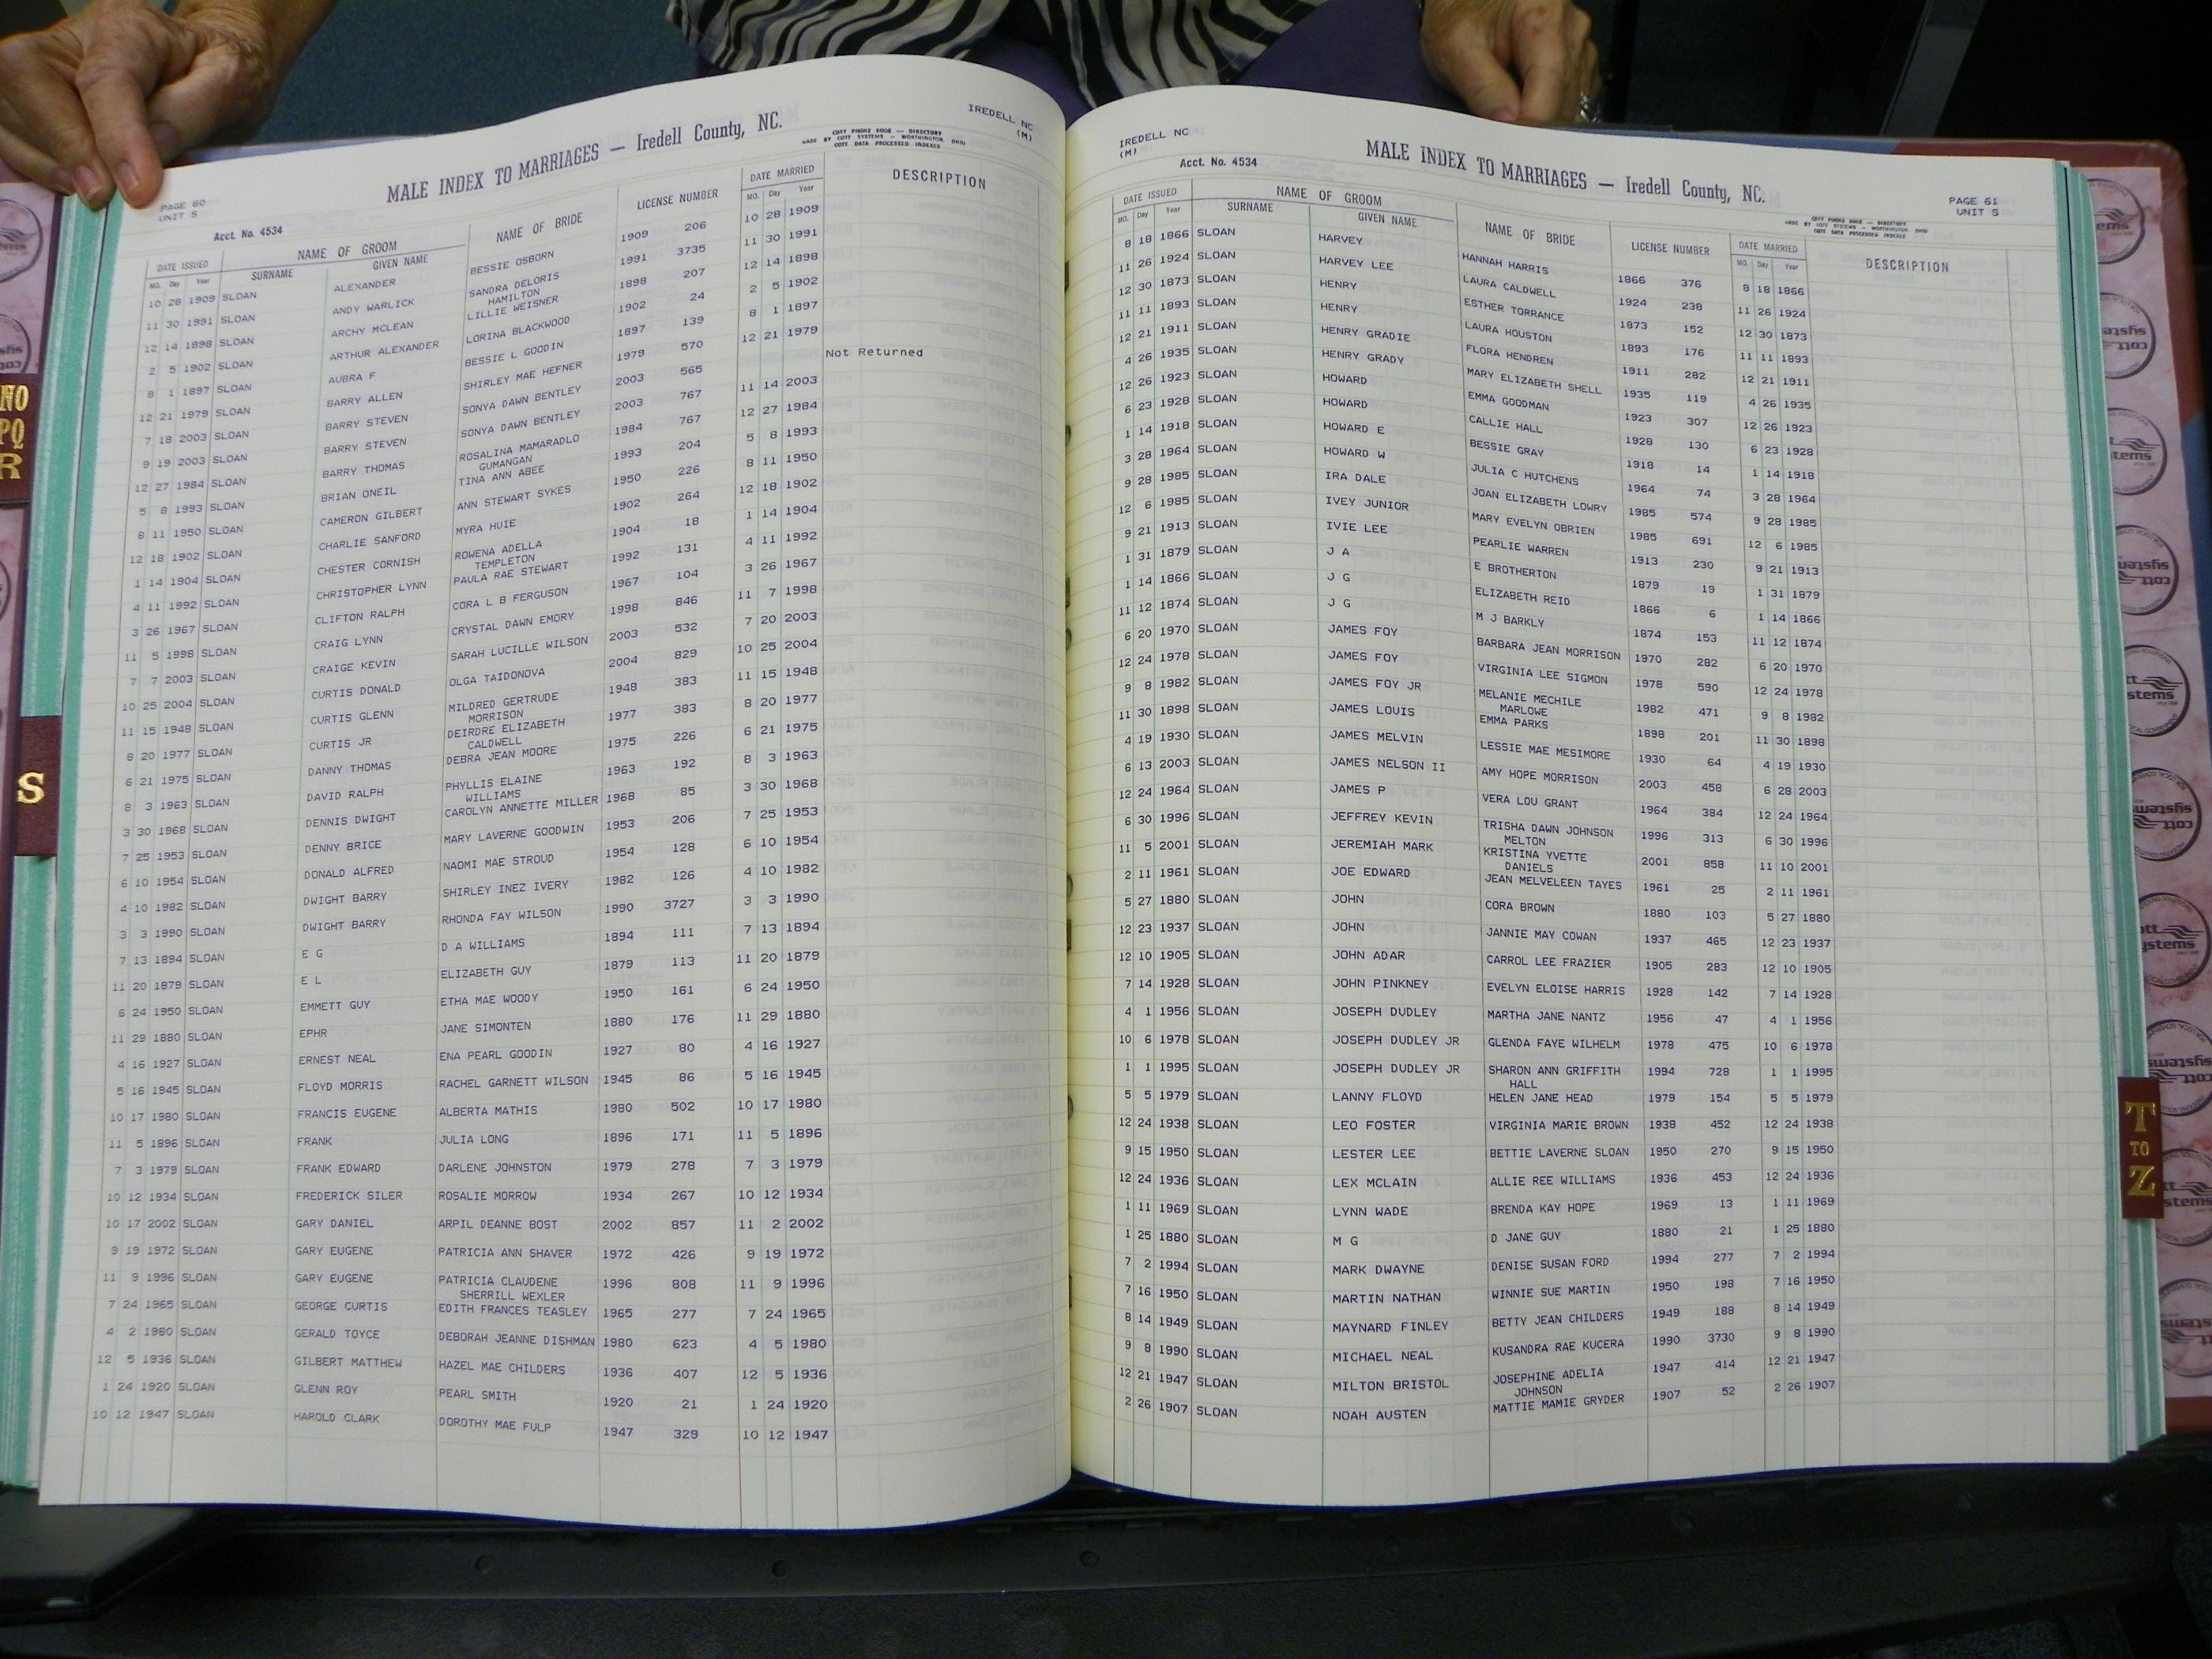 PAGE 60
UNIT S
Acct. No. 4534
MALE INDEX TO MARRIAGES — Iredell County, NC.
COTT PHONE BOOK — DIRECTORY
MADE BY COTT SYSTEMS — WORTHINGTON OHIO
COTT DATA PROCESSED INDEXES
IREDELL NC
(M)
DATE ISSUED NAME OF GROOM NAME OF BRIDE LICENSE NUMBER DATE MARRIED DESCRIPTION
MO. Day Year SURNAME GIVEN NAME MO. Day Year
10 28 1909 SLOAN ALEXANDER BESSIE OSBORN 1909 206 10 28 1909
11 30 1991 SLOAN ANDY WARLICK SANDRA DELORIS 1991 3735 11 30 1991
HAMILTON
12 14 1898 SLOAN ARCHY MCLEAN LILLIE WEISNER 1898 207 12 14 1898
2 5 1902 SLOAN ARTHUR ALEXANDER LORINA BLACKWOOD 1902 24 2 5 1902
8 1 1897 SLOAN AUBRA F BESSIE L GOODIN 1897 139 8 1 1897
12 21 1979 SLOAN BARRY ALLEN SHIRLEY MAE HEFNER 1979 570 12 21 1979
7 18 2003 SLOAN BARRY STEVEN SONYA DAWN BENTLEY 2003 565 Not Returned
9 19 2003 SLOAN BARRY STEVEN SONYA DAWN BENTLEY 2003 767 11 14 2003
12 27 1984 SLOAN BARRY THOMAS ROSALINA MAMARADLO 1984 767 12 27 1984
GUMANGAN
5 8 1993 SLOAN BRIAN ONEIL TINA ANN ABEE 1993 204 5 8 1993
8 11 1950 SLOAN CAMERON GILBERT ANN STEWART SYKES 1950 226 8 11 1950
12 18 1902 SLOAN CHARLIE SANFORD MYRA HUIE 1902 264 12 18 1902
1 14 1904 SLOAN CHESTER CORNISH ROWENA ADELLA 1904 18 1 14 1904
TEMPLETON
4 11 1992 SLOAN CHRISTOPHER LYNN PAULA RAE STEWART 1992 131 4 11 1992
3 26 1967 SLOAN CLIFTON RALPH CORA L B FERGUSON 1967 104 3 26 1967
11 5 1998 SLOAN CRAIG LYNN CRYSTAL DAWN EMORY 1998 846 11 7 1998
7 7 2003 SLOAN CRAIGE KEVIN SARAH LUCILLE WILSON 2003 532 7 20 2003
10 25 2004 SLOAN CURTIS DONALD OLGA TAIDONOVA 2004 829 10 25 2004
11 15 1948 SLOAN CURTIS GLENN MILDRED GERTRUDE 1948 383 11 15 1948
MORRISON
8 20 1977 SLOAN CURTIS JR DEIRDRE ELIZABETH 1977 383 8 20 1977
CALDWELL
6 21 1975 SLOAN DANNY THOMAS DEBRA JEAN MOORE 1975 226 6 21 1975
8 3 1963 SLOAN DAVID RALPH PHYLLIS ELAINE 1963 192 8 3 1963
WILLIAMS
3 30 1968 SLOAN DENNIS DWIGHT CAROLYN ANNETTE MILLER 1968 85 3 30 1968
7 25 1953 SLOAN DENNY BRICE MARY LAVERNE GOODWIN 1953 206 7 25 1953
6 10 1954 SLOAN DONALD ALFRED NAOMI MAE STROUD 1954 128 6 10 1954
4 10 1982 SLOAN DWIGHT BARRY SHIRLEY INEZ IVERY 1982 126 4 10 1982
3 3 1990 SLOAN DWIGHT BARRY RHONDA FAY WILSON 1990 3727 3 3 1990
7 13 1894 SLOAN E G D A WILLIAMS 1894 111 7 13 1894
11 20 1879 SLOAN E L ELIZABETH GUY 1879 113 11 20 1879
6 24 1950 SLOAN EMMETT GUY ETHA MAE WOODY 1950 161 6 24 1950
11 29 1880 SLOAN EPHR JANE SIMONTEN 1880 176 11 29 1880
4 16 1927 SLOAN ERNEST NEAL ENA PEARL GOODIN 1927 80 4 16 1927
5 16 1945 SLOAN FLOYD MORRIS RACHEL GARNETT WILSON 1945 86 5 16 1945
10 17 1980 SLOAN FRANCIS EUGENE ALBERTA MATHIS 1980 502 10 17 1980
11 5 1896 SLOAN FRANK JULIA LONG 1896 171 11 5 1896
7 3 1979 SLOAN FRANK EDWARD DARLENE JOHNSTON 1979 278 7 3 1979
10 12 1934 SLOAN FREDERICK SILER ROSALIE MORROW 1934 267 10 12 1934
10 17 2002 SLOAN GARY DANIEL ARPIL DEANNE BOST 2002 857 11 2 2002
9 19 1972 SLOAN GARY EUGENE PATRICIA ANN SHAVER 1972 426 9 19 1972
11 9 1996 SLOAN GARY EUGENE PATRICIA CLAUDENE 1996 808 11 9 1996
SHERRILL WEXLER
7 24 1965 SLOAN GEORGE CURTIS EDITH FRANCES TEASLEY 1965 277 7 24 1965
4 2 1980 SLOAN GERALD TOYCE DEBORAH JEANNE DISHMAN 1980 623 4 5 1980
12 5 1936 SLOAN GILBERT MATTHEW HAZEL MAE CHILDERS 1936 407 12 5 1936
1 24 1920 SLOAN GLENN ROY PEARL SMITH 1920 21 1 24 1920
10 12 1947 SLOAN HAROLD CLARK DOROTHY MAE FULP 1947 329 10 12 1947
IREDELL NC
(M)
Acct. No. 4534
MALE INDEX TO MARRIAGES — Iredell County, NC.
PAGE 61
UNIT S
COTT PHONE BOOK — DIRECTORY
MADE BY COTT SYSTEMS — WORTHINGTON OHIO
COTT DATA PROCESSED INDEXES
DATE ISSUED NAME OF GROOM NAME OF BRIDE LICENSE NUMBER DATE MARRIED DESCRIPTION
MO. Day Year SURNAME GIVEN NAME MO. Day Year
8 18 1866 SLOAN HARVEY HANNAH HARRIS 1866 376 8 18 1866
11 26 1924 SLOAN HARVEY LEE LAURA CALDWELL 1924 238 11 26 1924
12 30 1873 SLOAN HENRY ESTHER TORRANCE 1873 152 12 30 1873
11 11 1893 SLOAN HENRY LAURA HOUSTON 1893 176 11 11 1893
12 21 1911 SLOAN HENRY GRADIE FLORA HENDREN 1911 282 12 21 1911
4 26 1935 SLOAN HENRY GRADY MARY ELIZABETH SHELL 1935 119 4 26 1935
12 26 1923 SLOAN HOWARD EMMA GOODMAN 1923 307 12 26 1923
6 23 1928 SLOAN HOWARD CALLIE HALL 1928 130 6 23 1928
1 14 1918 SLOAN HOWARD E BESSIE GRAY 1918 14 1 14 1918
3 28 1964 SLOAN HOWARD W JULIA C HUTCHENS 1964 74 3 28 1964
9 28 1985 SLOAN IRA DALE JOAN ELIZABETH LOWRY 1985 574 9 28 1985
12 6 1985 SLOAN IVEY JUNIOR MARY EVELYN OBRIEN 1985 691 12 6 1985
9 21 1913 SLOAN IVIE LEE PEARLIE WARREN 1913 230 9 21 1913
1 31 1879 SLOAN J A E BROTHERTON 1879 19 1 31 1879
1 14 1866 SLOAN J G ELIZABETH REID 1866 6 1 14 1866
11 12 1874 SLOAN J G M J BARKLY 1874 153 11 12 1874
6 20 1970 SLOAN JAMES FOY BARBARA JEAN MORRISON 1970 282 6 20 1970
12 24 1978 SLOAN JAMES FOY VIRGINIA LEE SIGMON 1978 590 12 24 1978
9 8 1982 SLOAN JAMES FOY JR MELANIE MECHILE 1982 471 9 8 1982
MARLOWE
11 30 1898 SLOAN JAMES LOUIS EMMA PARKS 1898 201 11 30 1898
4 19 1930 SLOAN JAMES MELVIN LESSIE MAE MESIMORE 1930 64 4 19 1930
6 13 2003 SLOAN JAMES NELSON II AMY HOPE MORRISON 2003 458 6 28 2003
12 24 1964 SLOAN JAMES P VERA LOU GRANT 1964 384 12 24 1964
6 30 1996 SLOAN JEFFREY KEVIN TRISHA DAWN JOHNSON 1996 313 6 30 1996
MELTON
11 5 2001 SLOAN JEREMIAH MARK KRISTINA YVETTE 2001 858 11 10 2001
DANIELS
2 11 1961 SLOAN JOE EDWARD JEAN MELVELEEN TAYES 1961 25 2 11 1961
5 27 1880 SLOAN JOHN CORA BROWN 1880 103 5 27 1880
12 23 1937 SLOAN JOHN JANNIE MAY COWAN 1937 465 12 23 1937
12 10 1905 SLOAN JOHN ADAR CARROL LEE FRAZIER 1905 283 12 10 1905
7 14 1928 SLOAN JOHN PINKNEY EVELYN ELOISE HARRIS 1928 142 7 14 1928
4 1 1956 SLOAN JOSEPH DUDLEY MARTHA JANE NANTZ 1956 47 4 1 1956
10 6 1978 SLOAN JOSEPH DUDLEY JR GLENDA FAYE WILHELM 1978 475 10 6 1978
1 1 1995 SLOAN JOSEPH DUDLEY JR SHARON ANN GRIFFITH 1994 728 1 1 1995
HALL
5 5 1979 SLOAN LANNY FLOYD HELEN JANE HEAD 1979 154 5 5 1979
12 24 1938 SLOAN LEO FOSTER VIRGINIA MARIE BROWN 1938 452 12 24 1938
9 15 1950 SLOAN LESTER LEE BETTIE LAVERNE SLOAN 1950 270 9 15 1950
12 24 1936 SLOAN LEX MCLAIN ALLIE REE WILLIAMS 1936 453 12 24 1936
1 11 1969 SLOAN LYNN WADE BRENDA KAY HOPE 1969 13 1 11 1969
1 25 1880 SLOAN M G D JANE GUY 1880 21 1 25 1880
7 2 1994 SLOAN MARK DWAYNE DENISE SUSAN FORD 1994 277 7 2 1994
7 16 1950 SLOAN MARTIN NATHAN WINNIE SUE MARTIN 1950 198 7 16 1950
8 14 1949 SLOAN MAYNARD FINLEY BETTY JEAN CHILDERS 1949 188 8 14 1949
9 8 1990 SLOAN MICHAEL NEAL KUSANDRA RAE KUCERA 1990 3730 9 8 1990
12 21 1947 SLOAN MILTON BRISTOL JOSEPHINE ADELIA 1947 414 12 21 1947
JOHNSON
2 26 1907 SLOAN NOAH AUSTEN MATTIE MAMIE GRYDER 1907 52 2 26 1907
NO
PQ
R
S
T
TO
Z